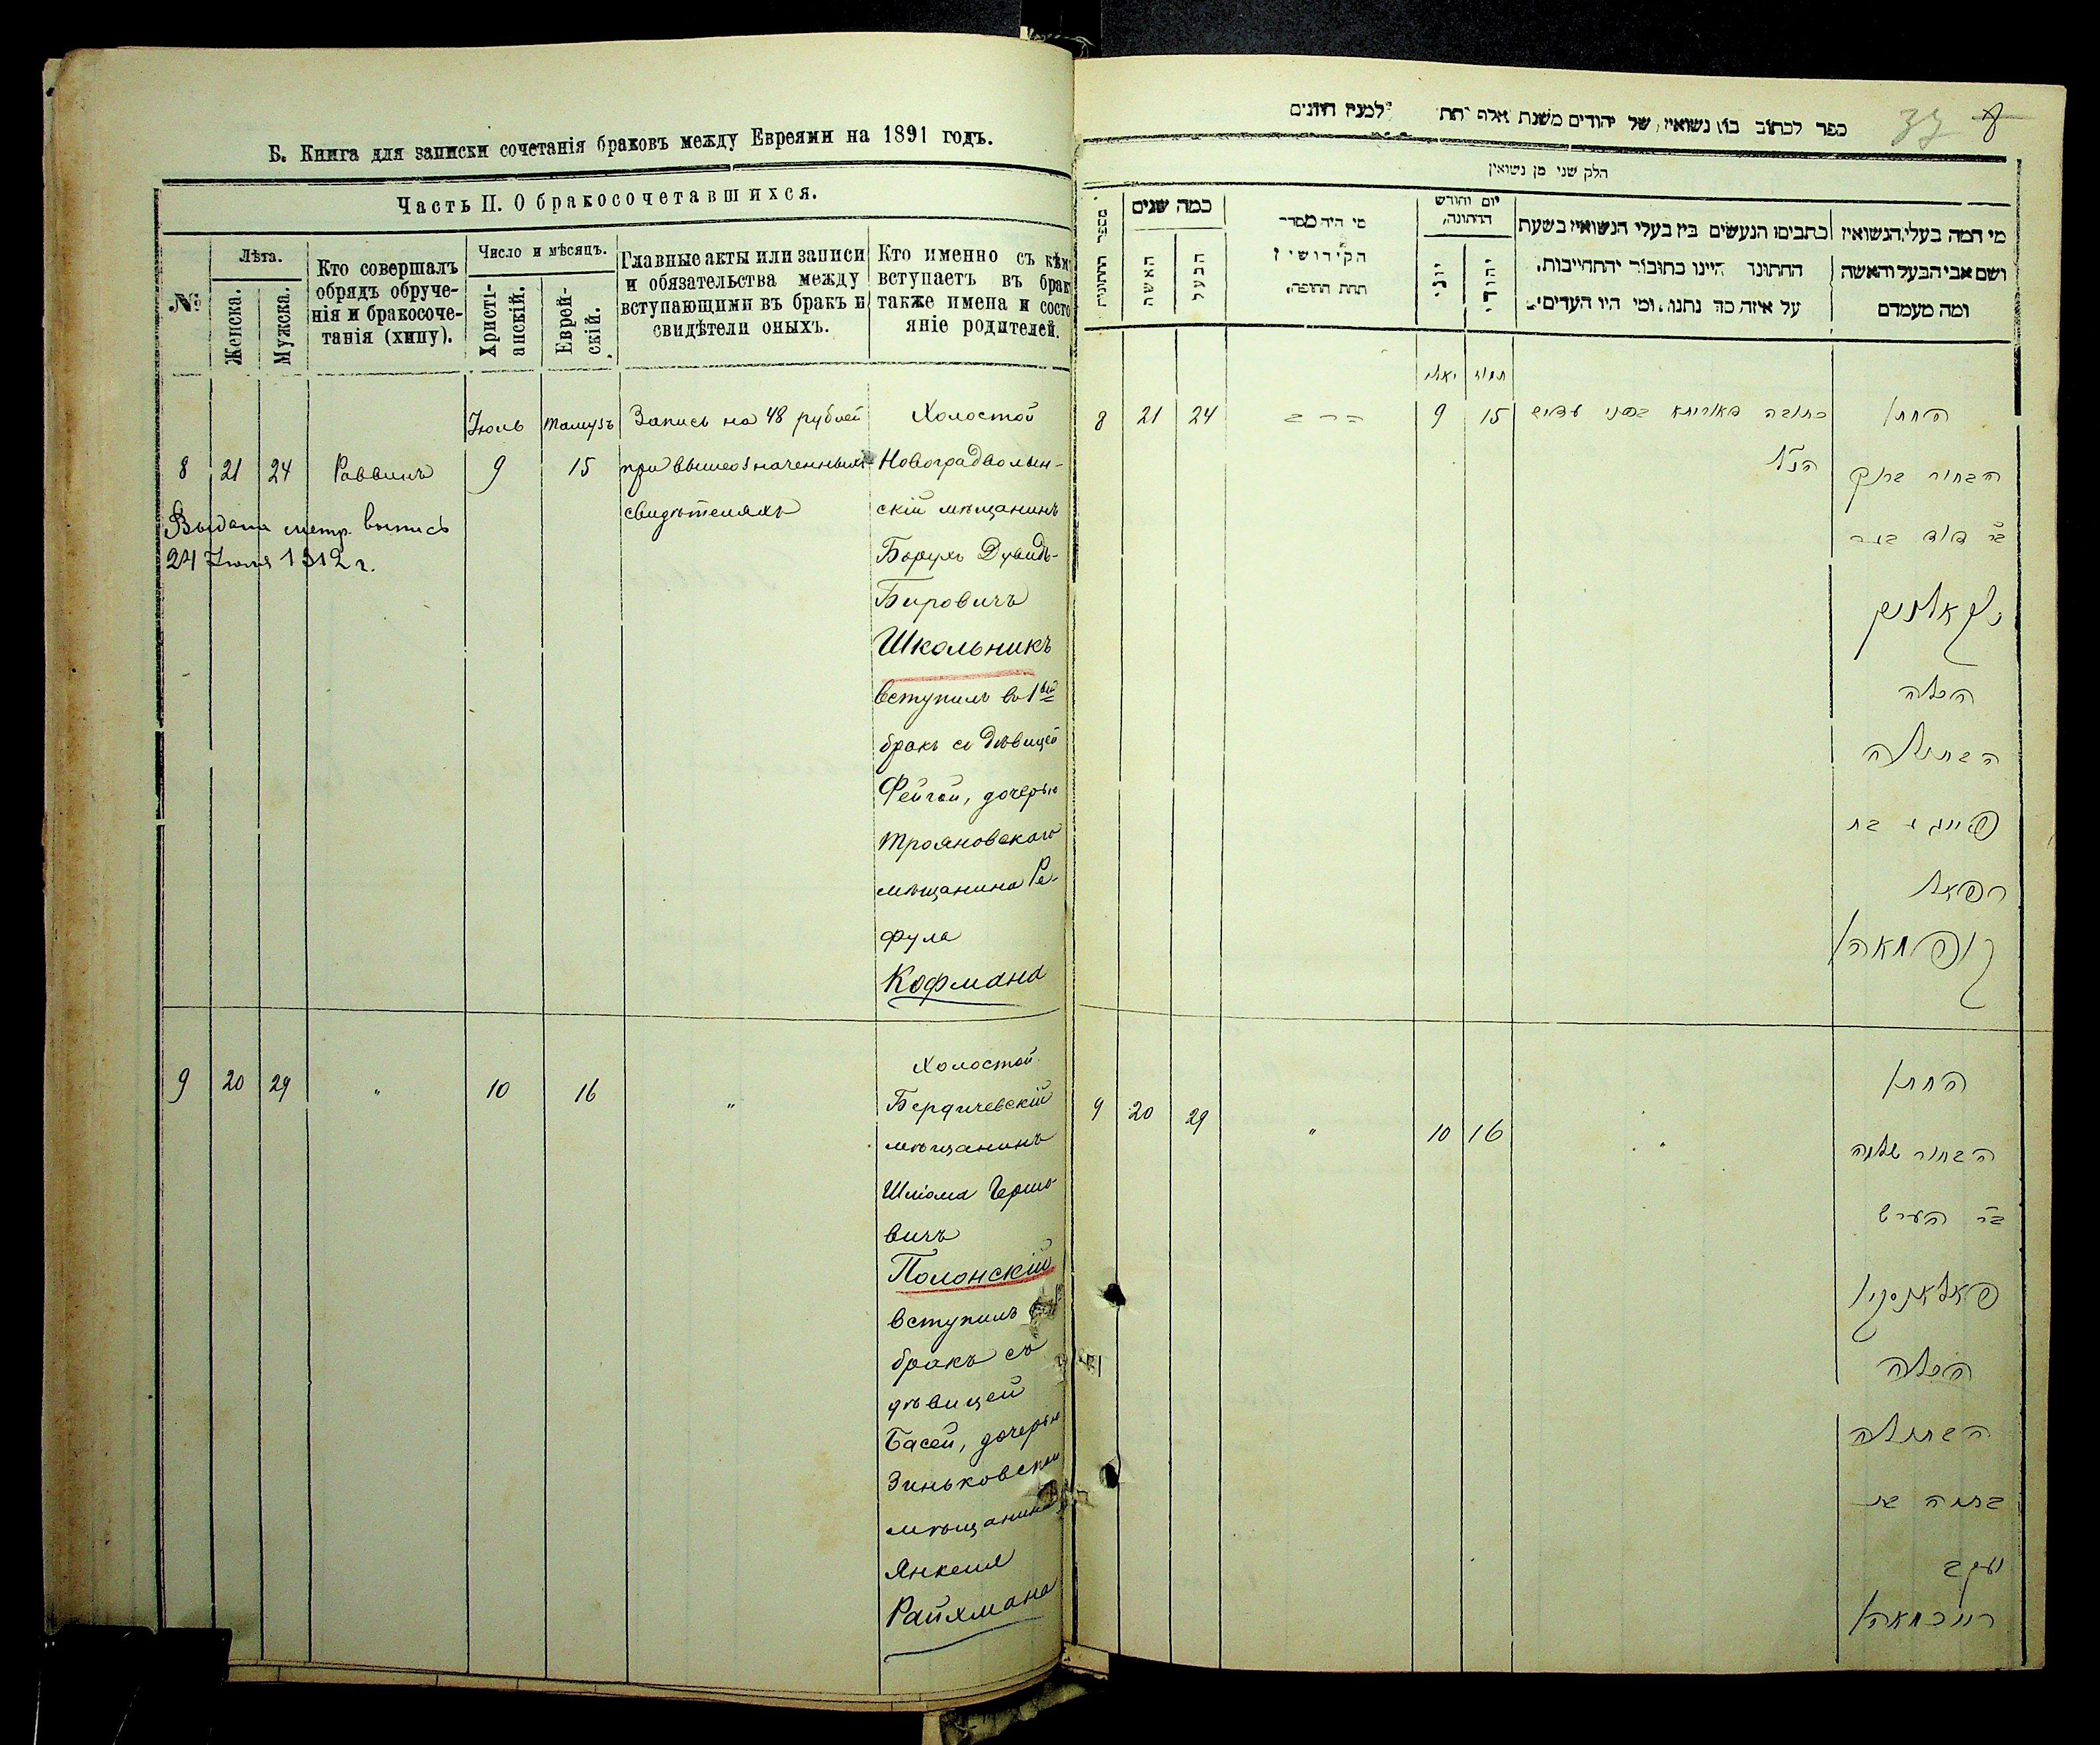 Б. Книга для записки сочетанія браковъ между Евреями на 1891 годъ.
Часть II. О бракосочетавшихся.
№
Лѣта.
Женска.
Мужска.
Кто совершалъ
обрядъ обруче-
нія и бракосоче-
танія (хипу).
Число и мѣсяцъ.
Христі-
анскій.
Еврей-
скій.
Главные акты или записи
и обязательства между
вступающими въ бракъ и
свидѣтели оныхъ.
Кто именно съ кѣм
вступаетъ въ брак
также имена и состо
яніе родителей.
8 21 24 Раввинъ
Іюль 9
Тамузъ 15
Запись на 48 рублей
при вышеозначенныхъ
свидѣтеляхъ
Выдана метр. выпись
24 Іюля 1912 г.
Холостой
Новоградволын-
скій мѣщанинъ
Борухъ Дувидъ-
Беровичъ
Школьникъ
вступилъ въ 1вый
бракъ съ дѣвицей
Фейгой, дочерью
Трояновскаго
мѣщанина Ре-
фула
Кофмана
9 20 29 " 10 16 "
Холостой
Бердичевскій
мѣщанинъ
Шлiома Герш-
вичъ
Полонскій
вступилъ
бракъ съ
дѣвицей
Басей, дочерью
Зиньковскаго
мѣщанина
Янкеля
Райхмана
37 8
ספר לכתוב בו נשואין של יהודים משנת אלף תת למנין הוונים
חלק שני מן נשואין
מספר החתונות
כמה שנים
האשה
הבעל
מי היה מסדר
הקידושין
תחת החופה,
יום וחודש
החתונה,
יוני
יהודי
כתבים הנעשים בין בעלי הנשואין בשעת
החתונה היינו כתובות והתחייבות,
על איזה סך נתנו, ומי היו העדים
מי המה בעלי הנשואין
ושם אבי הבעל והאשה
ומה מעמדם
8 21 24 הרב
יאלי 9
תמוז 15
כתובה דאוריתא בפני עדים
הנ"ל
החתן
הבחור ברוך
ב"ר דוד בער
שקאלניק
הכלה
הבתולה
פייגי בת
רפאל
קופמאהן
9 20 29 " 10 16 "
החתן
הבחור שלמה
ב"ר הערש
פאלאנסקי
הכלה
הבתולה
בתיה בת
יעקב
רייכמאהן